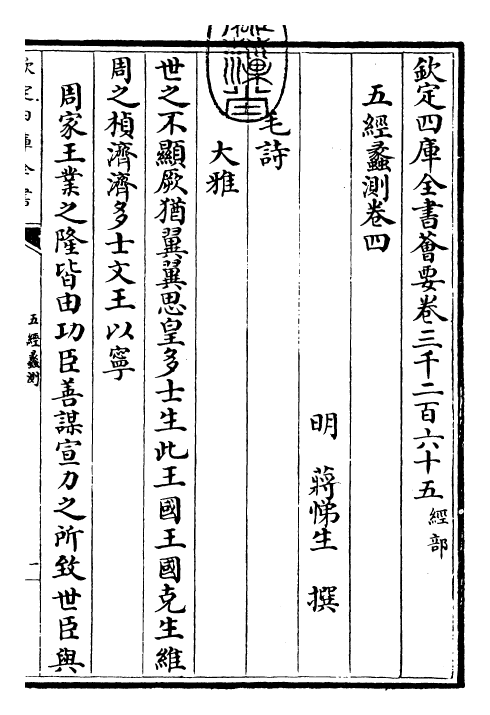 欽定四庫全書薈要卷三千二百六十五 經部
五經蠡測卷四
明 蔣悌生 撰
毛詩
大雅
世之不顯厥猶翼翼思皇多士生此王國王國克生維
周之楨濟濟多士文王以寧
周家王業之隆皆由功臣善謀宣力之所致世臣與
欽定四庫全書
五經蠡測